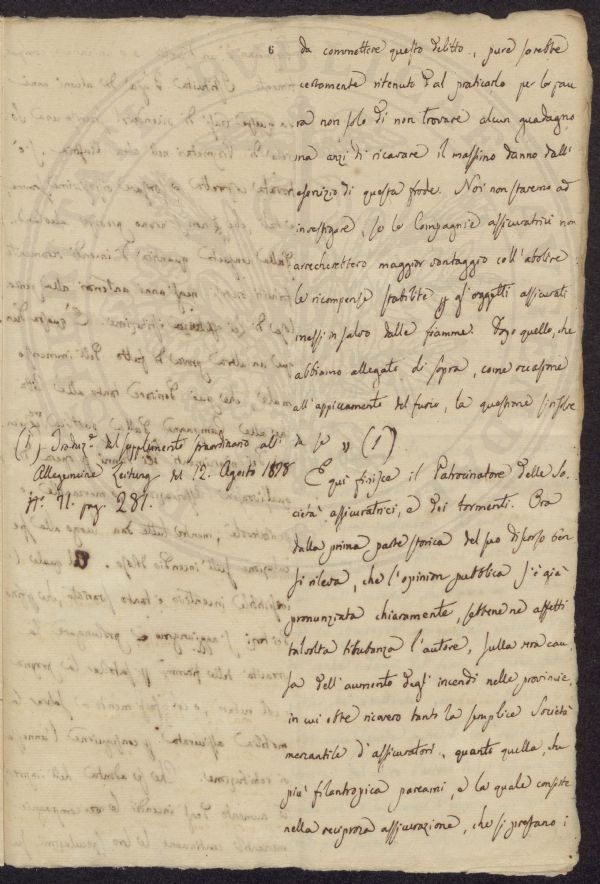 6
da commettere questo delitto, pure sarebbe
certamente ritenuto dal praticarlo per la pau
ra non solo di non trovare alcun guadagno
ma anzi di ricavare il massimo danno dall'
esercizio di questa frode. Noi non staremo ad
investigare, se le Compagnie assicuratrici non
arrecherebbero maggior vantaggio coll'abolire
le ricompense stabilite gli oggetti assicurati
messi in salvo dalle fiamme. Dopo quello, che
abbiamo allegato di sopra, come occasione
all'appiccamento del fuoco, la questione si risolve
da se „ (1)
(1) Traduz.e dal supplimento straordinario all'
Allegemeine Zeitung del 12. Agosto 1828
N.o 71. pag. 281.
E qui finisce il Patrocinatore delle So
cietà assicuratrici, e dei tormenti. Ora
dalla prima parte storica del suo discorso ben
si rileva, che l'opinion pubblica s'è già
pronunziata chiaramente, sebbene ne affetti
talvolta titubanza l'autore, sulla vera cau
sa dell'aumento degli incendi nelle provincie,
in cui ebbe ricovero tanto la semplice Società
mercantile d'assicuratori, quanto quella, che
più filantropica pareami, e la quale consiste
nella reciproca assicurazione, che si prestano i